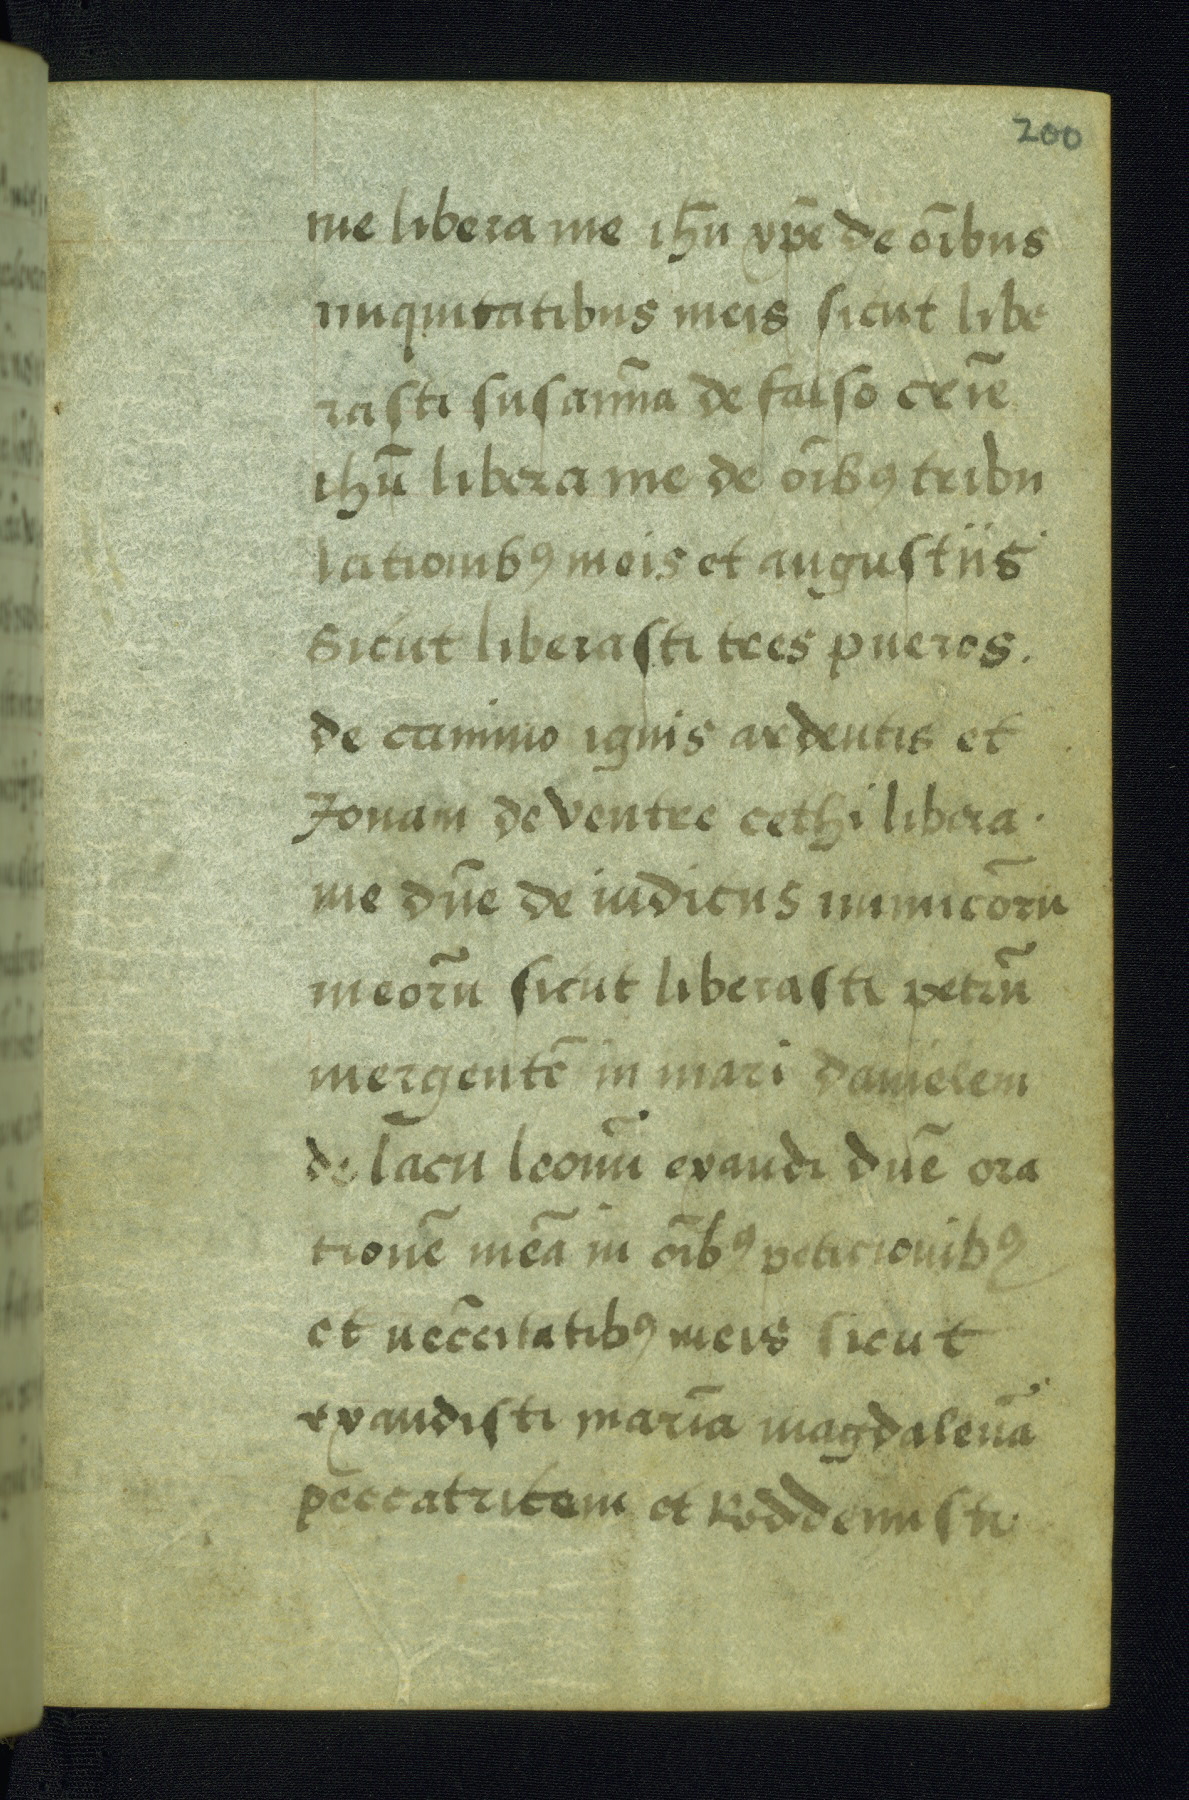 200
tue libera me ihū xp̄e de oībus
iniquitatibus meis sicut libe
rasti susannā de falso crīe
ihū libera me de oībꝰ tribu
lationibꝰ meis et angustiis
Sicut liberasti tres pueros.
de camino ignis ardentis et
Jonam de ventre cethi libera.
me dn̄e de iudiciis inimicōru
meorū sicut liberasti petrū
mergentē in mari danielem
de lacu leonū exaudi dn̄e ora
tionē meā in oībꝰ peticionibꝰ
et neccītatibꝰ meis sicut
exaudisti mariā magdalenā
peccatricem et Reddemisti